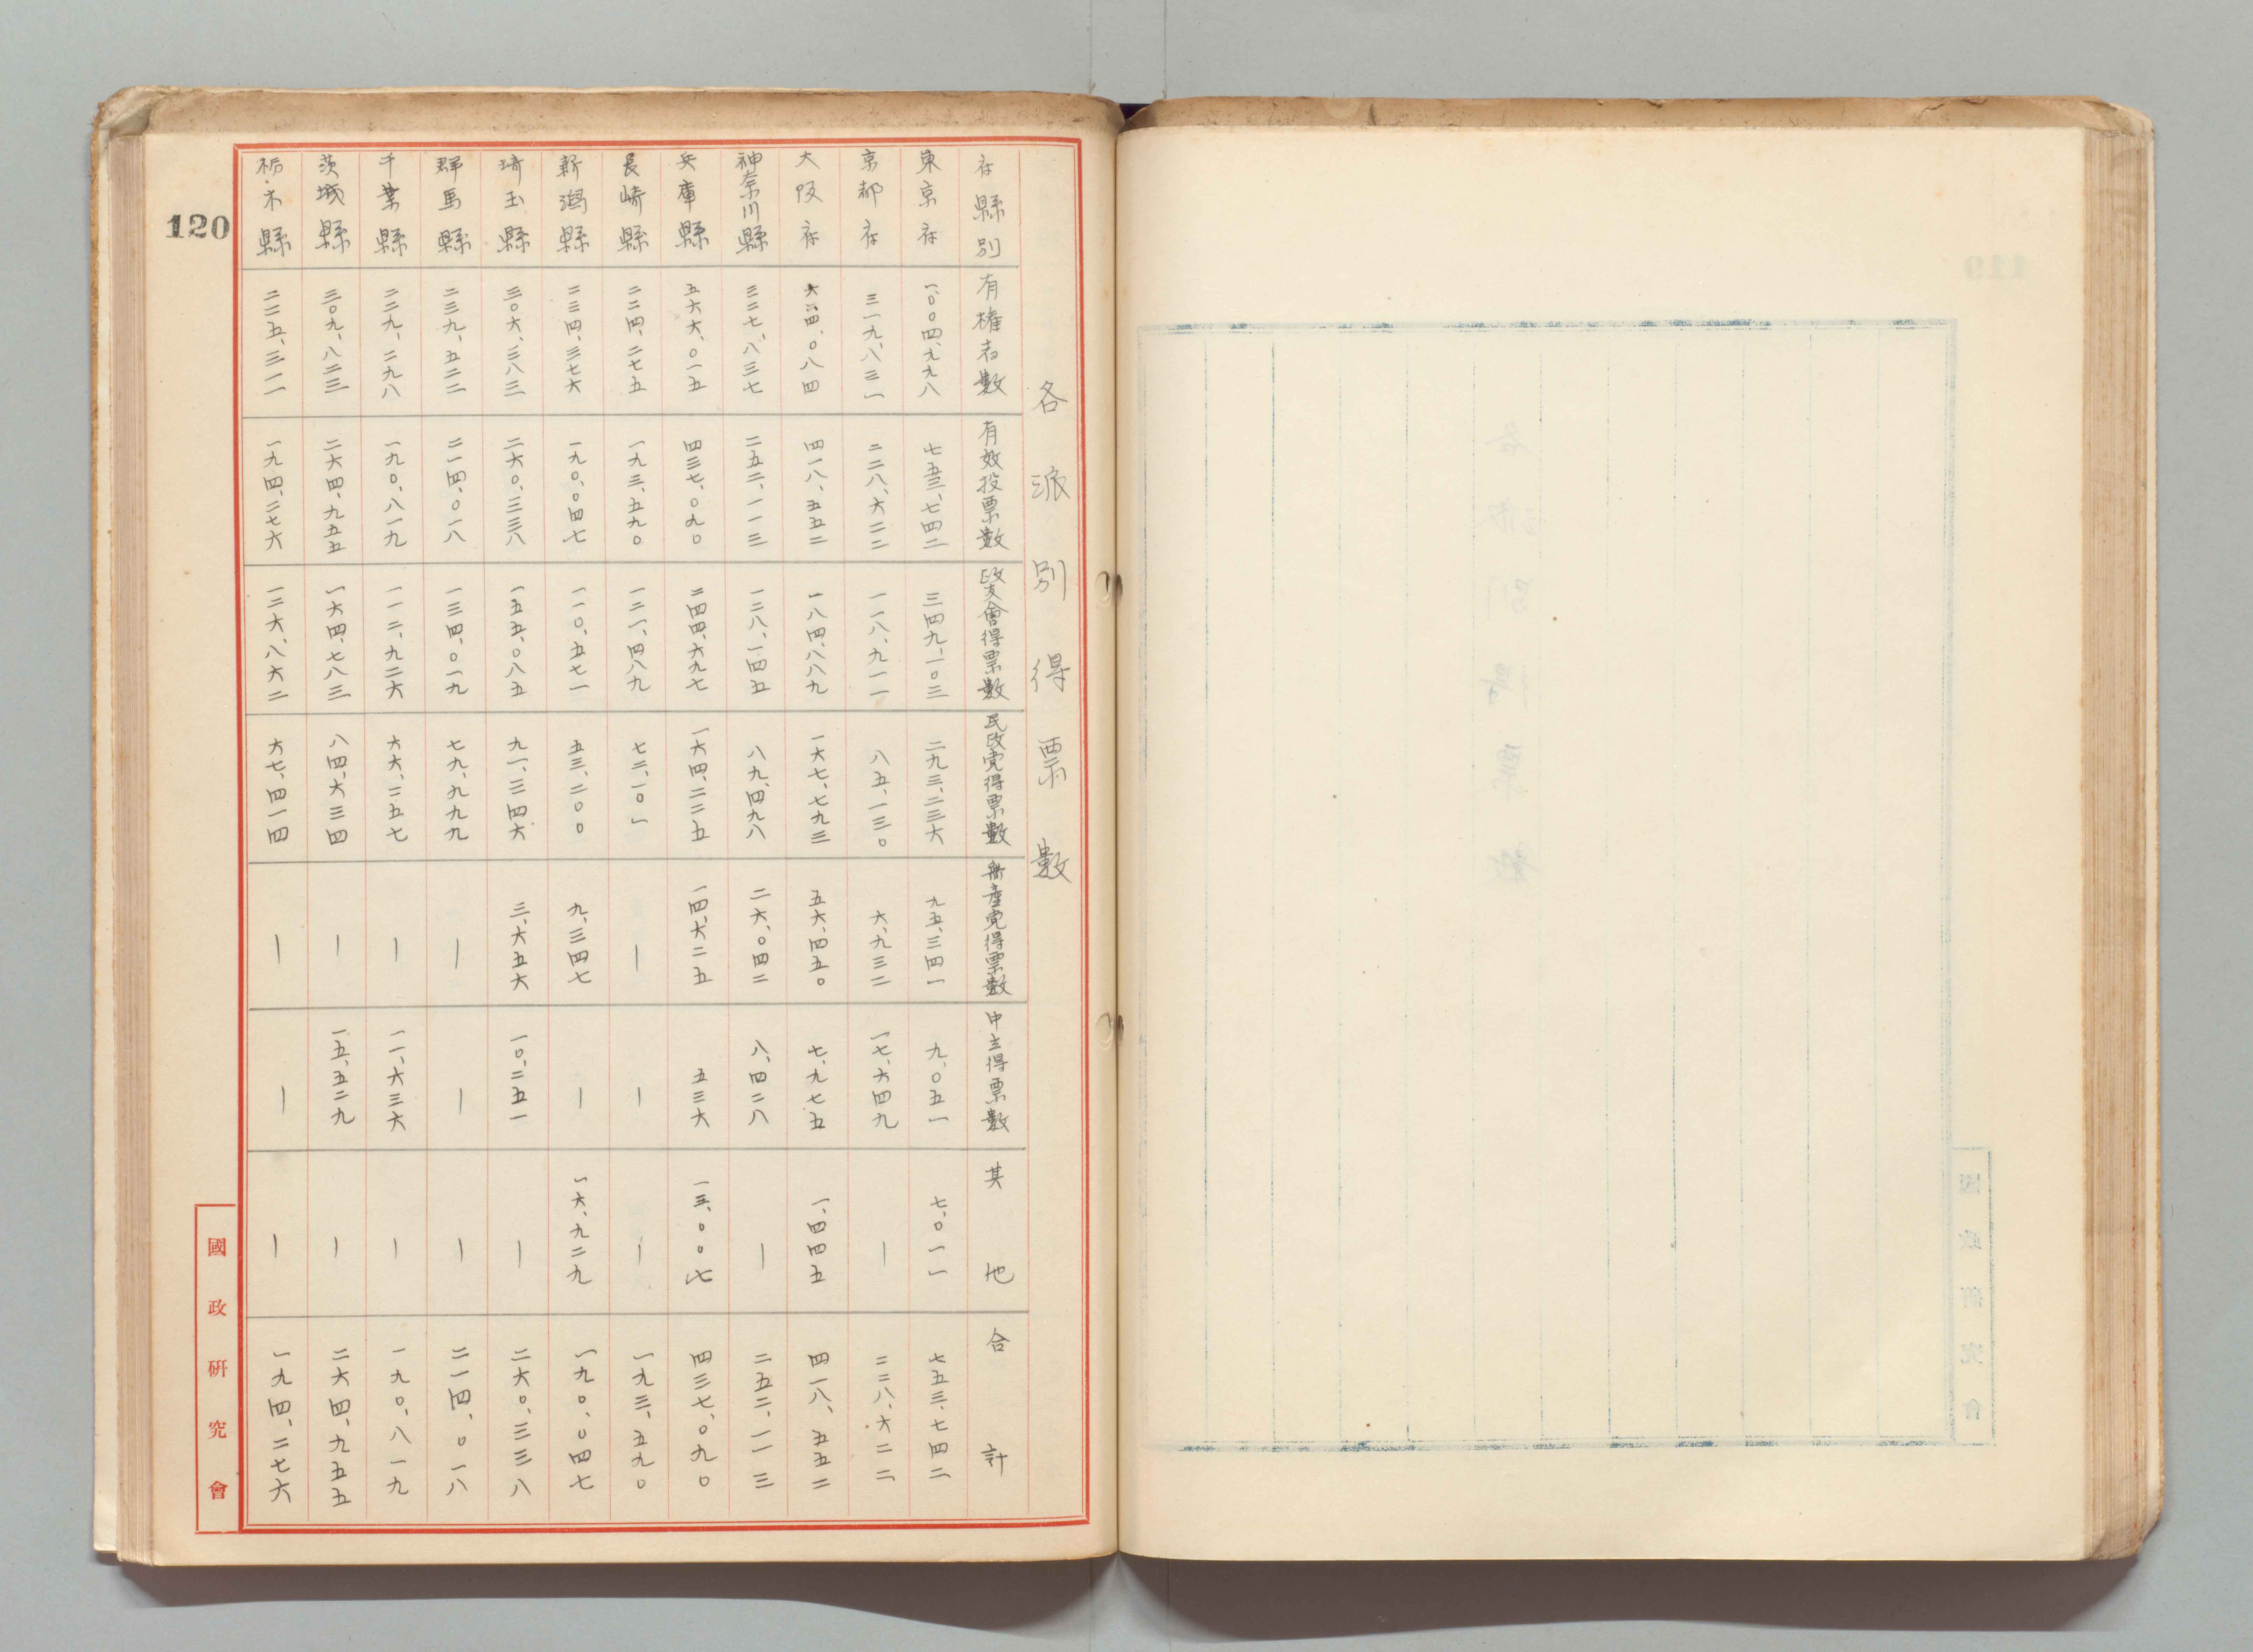 各派別得票數
府縣別 有権者數 有效投票數 政友會得票數 民政党得票數 無産党得票數 中立得票數 其他 合計
東京府 一、〇〇四、九九八 七五三、七四二 三四九、一〇三 二九三、二三六 九五、三四一 九、〇五一 七、〇一一 七五三、七四二
京都府 三一九、八三一 二二八、六二二 一一八、九一一 八五、一三〇 六、九三二 一七、六四九 — 二二八、六二二
大阪府 六二四、〇八四 四一八、五五二 一八四、八八九 一六七、七九三 五六、四五〇 七、九七五 一、四四五 四一八、五五二
神奈川縣 三二七、八三七 二五二、一一三 一二八、一四五 八九、四九八 二六、〇四二 八、四二八 — 二五二、一一三
兵庫縣 五六六、〇一五 四三七、〇九〇 二四四、六九七 一六四、二二五 一四、六二五 五三六 一三、〇〇七 四三七、〇九〇
長崎縣 二二四、二七五 一九三、五九〇 一二一、四八九 七二、一〇一 — — — 一九三、五九〇
新潟縣 二三四、三七六 一九〇、〇四七 一一〇、五七一 五三、二〇〇 九、三四七 — 一六、九二九 一九〇、〇四七
埼玉縣 三〇六、三八三 二六〇、三三八 一五五、〇八五 九一、三四六 三、六五六 一〇、二五一 — 二六〇、三三八
群馬縣 二三九、五二二 二一四、〇一八 一三四、〇一九 七九、九九九 — — — 二一四、〇一八
千葉縣 二二九、二九八 一九〇、八一九 一一二、九二六 六六、二五七 — 一一、六三六 — 一九〇、八一九
茨城縣 三〇九、八二三 二六四、九五五 一六四、七八三 八四、六三四 — 一五、五二九 — 二六四、九五五
栃木縣 二二五、三一一 一九四、二七六 一二六、八六二 六七、四一四 — — — 一九四、二七六
120
國政研究會